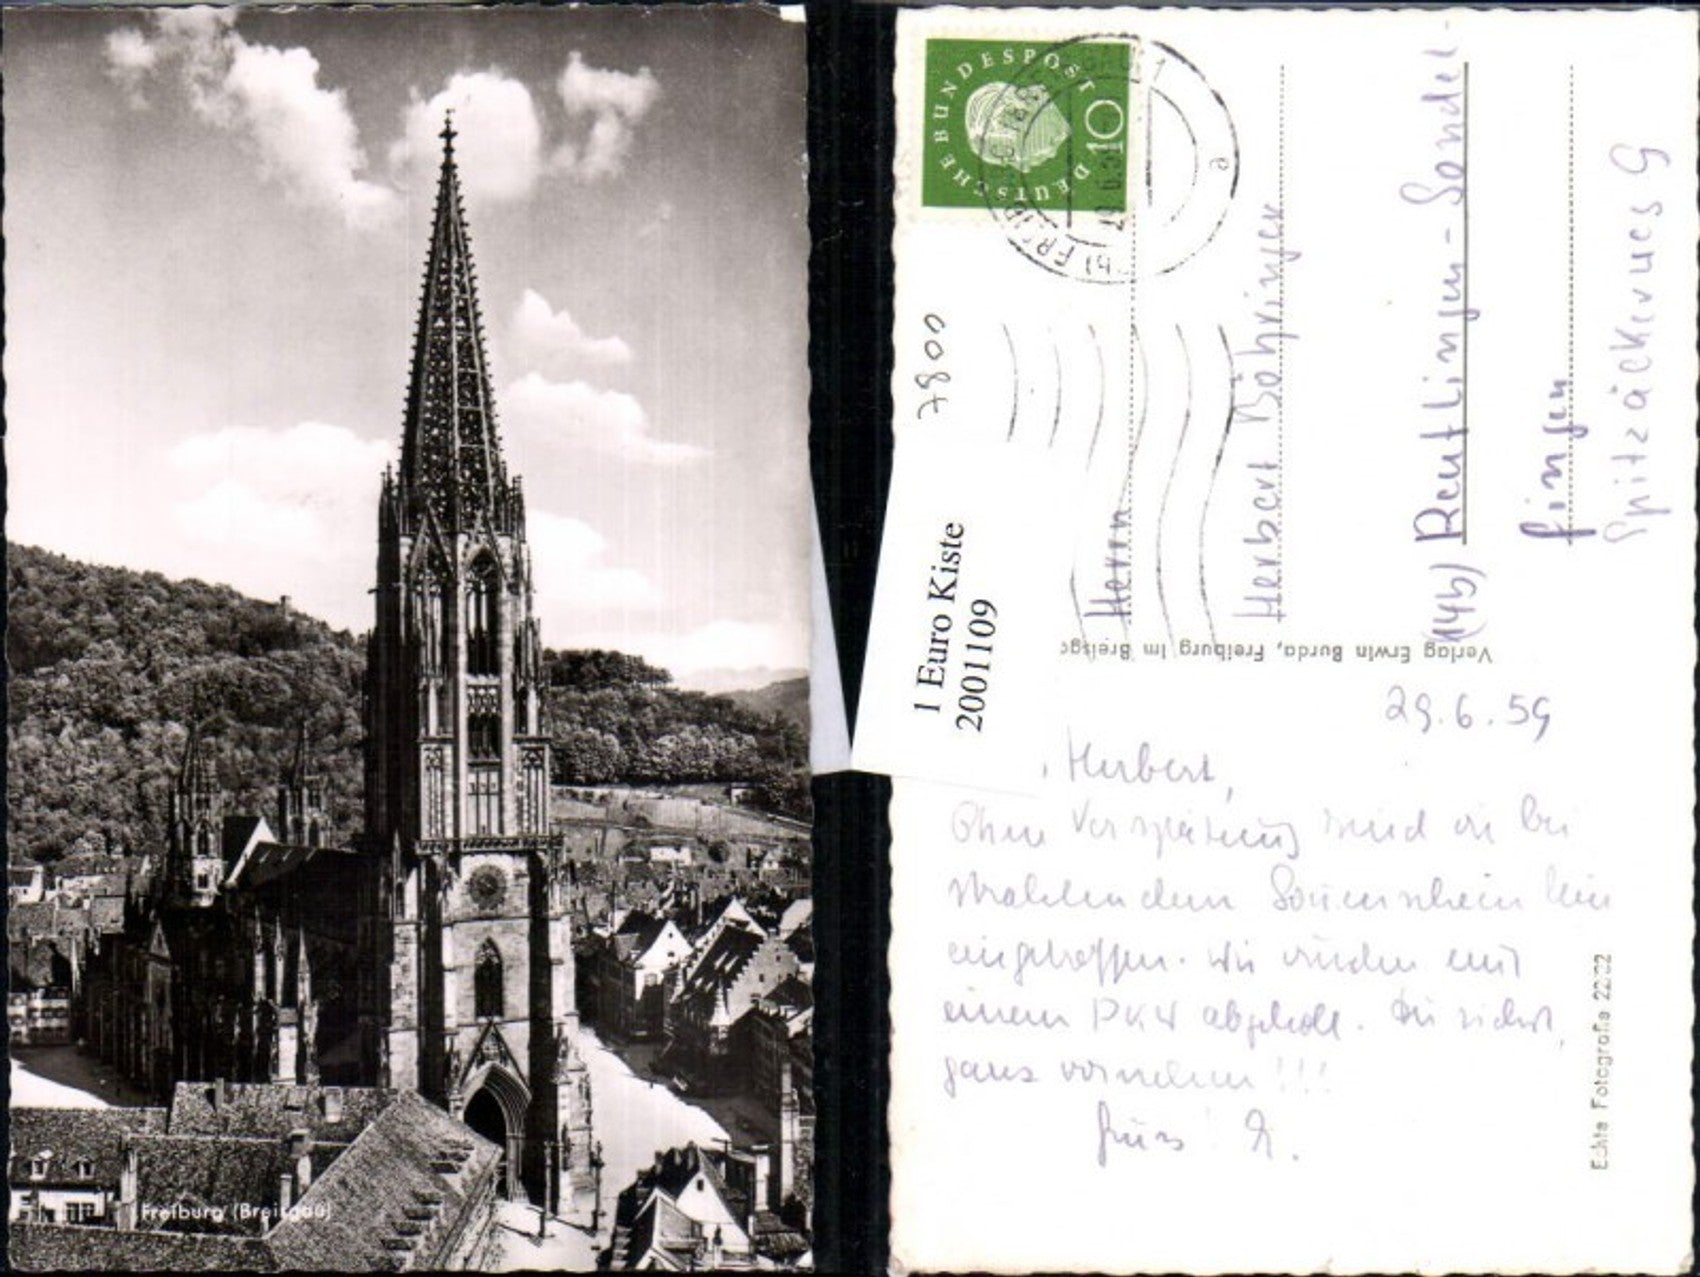 Freiburg (Breisgau)
DEUTSCHE BUNDESPOST
10
e
7800
1 Euro Kiste
2001109
Herrn
Herbert Böhringer
(14b) Reutlingen-Sondel-
fingen
Spitzäckerweg 9
Verlag Erwin Burda, Freiburg im Breisg
29.6.59
Herbert,
Ohne Verspätung sind wir bei
strahlendem Sonnenschein hier
eingetroffen. Wir wurden mit
einem PKW abgeholt. Du siehst,
ganz vornehm!!!
Gruss!
Echte Fotografie 2202